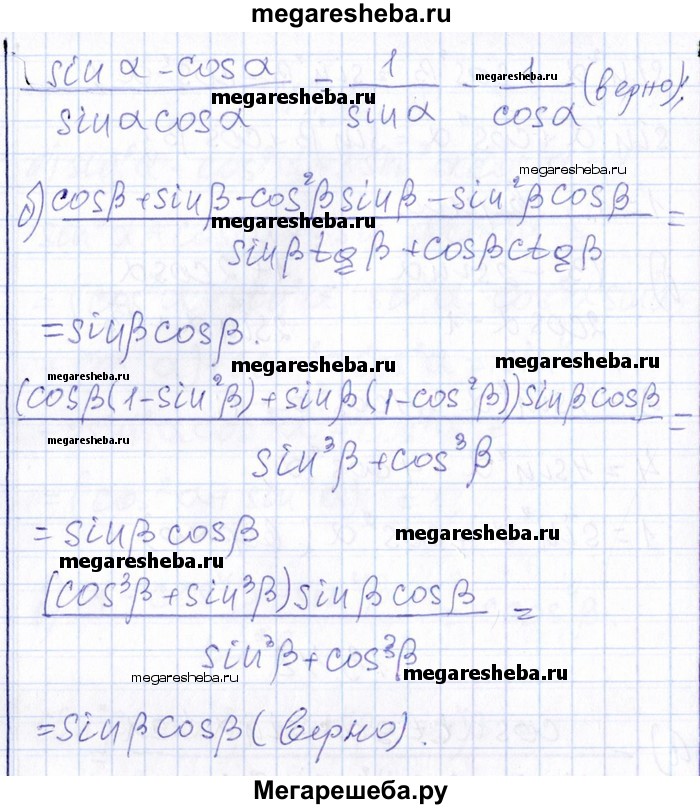 megaresheba.ru
(sin α - cos α)/(sin α cos α) = 1/sin α - 1/cos α (верно);
megaresheba.ru
megaresheba.ru
megaresheba.ru
б) (cosβ + sinβ - cos²β sinβ - sin²β cosβ)/(sinβ tgβ + cosβ ctgβ) =
megaresheba.ru
= sinβ cosβ.
megaresheba.ru
megaresheba.ru
megaresheba.ru
((cosβ(1 - sin²β) + sinβ(1 - cos²β)) sinβ cosβ)/(sin³β + cos³β) =
megaresheba.ru
megaresheba.ru
= sinβ cosβ
megaresheba.ru
megaresheba.ru
((cos³β + sin³β) sinβ cosβ)/(sin³β + cos³β) =
megaresheba.ru
megaresheba.ru
= sinβ cosβ (верно).
Мегарешеба.ру